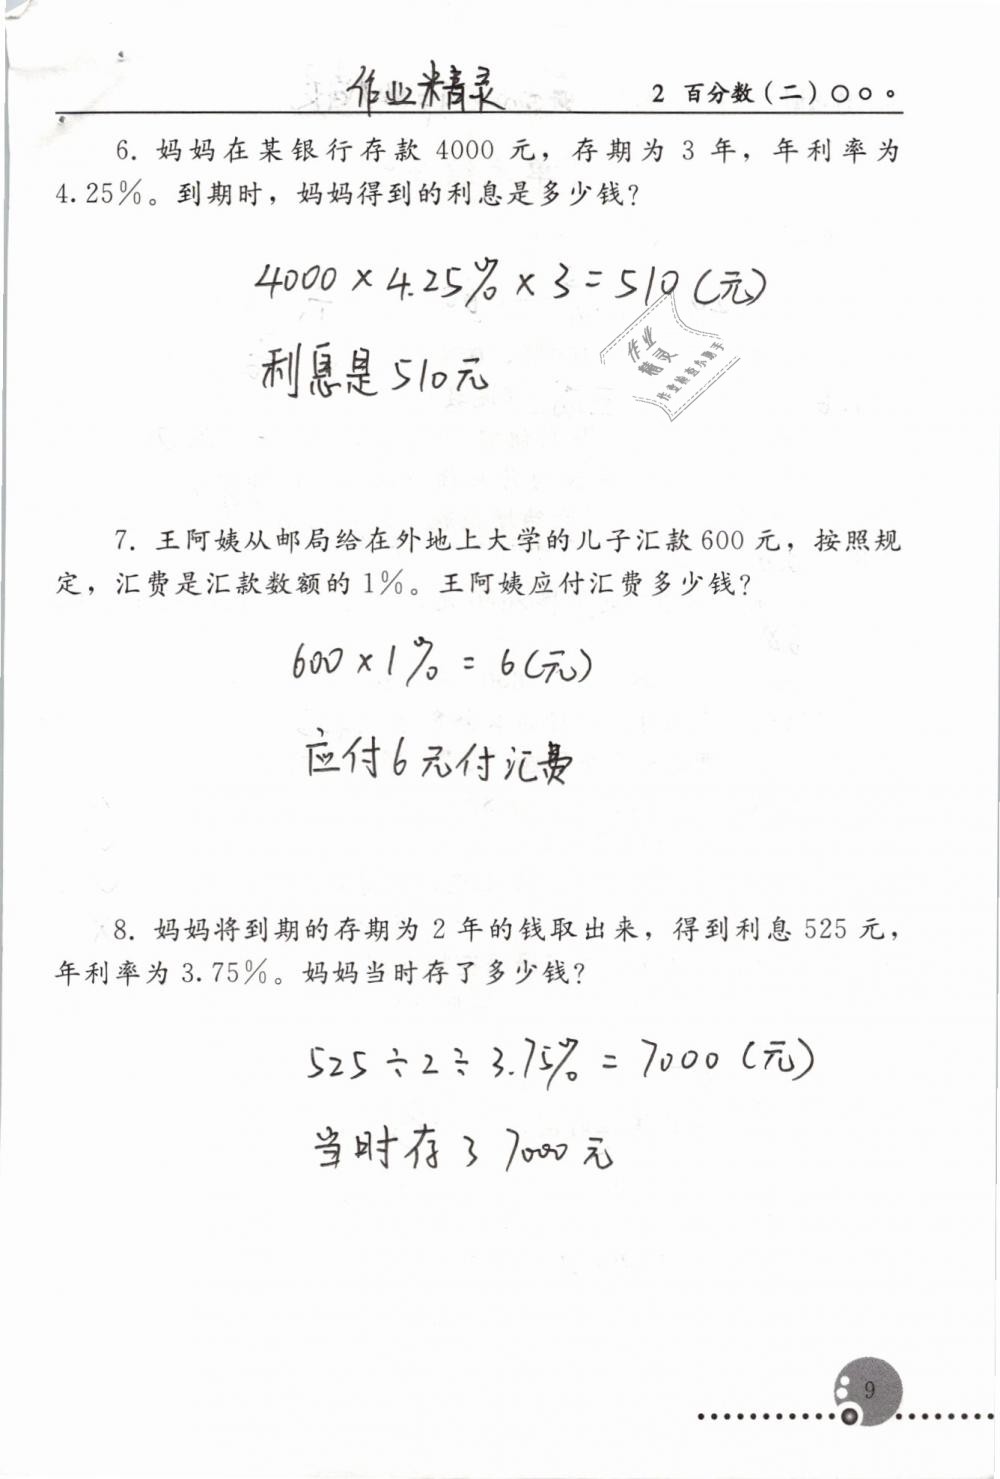 作业精灵
2 百分数(二)
6. 妈妈在某银行存款 4000 元，存期为 3 年，年利率为
4.25%。到期时，妈妈得到的利息是多少钱？
4000×4.25%×3=510(元)
作业
精灵
作业检查小助手
利息是510元
7. 王阿姨从邮局给在外地上大学的儿子汇款 600 元，按照规
定，汇费是汇款数额的 1%。王阿姨应付汇费多少钱？
600×1%=6(元)
应付6元付汇费
8. 妈妈将到期的存期为 2 年的钱取出来，得到利息 525 元，
年利率为 3.75%。妈妈当时存了多少钱？
525÷2÷3.75%=7000(元)
当时存了7000元
9